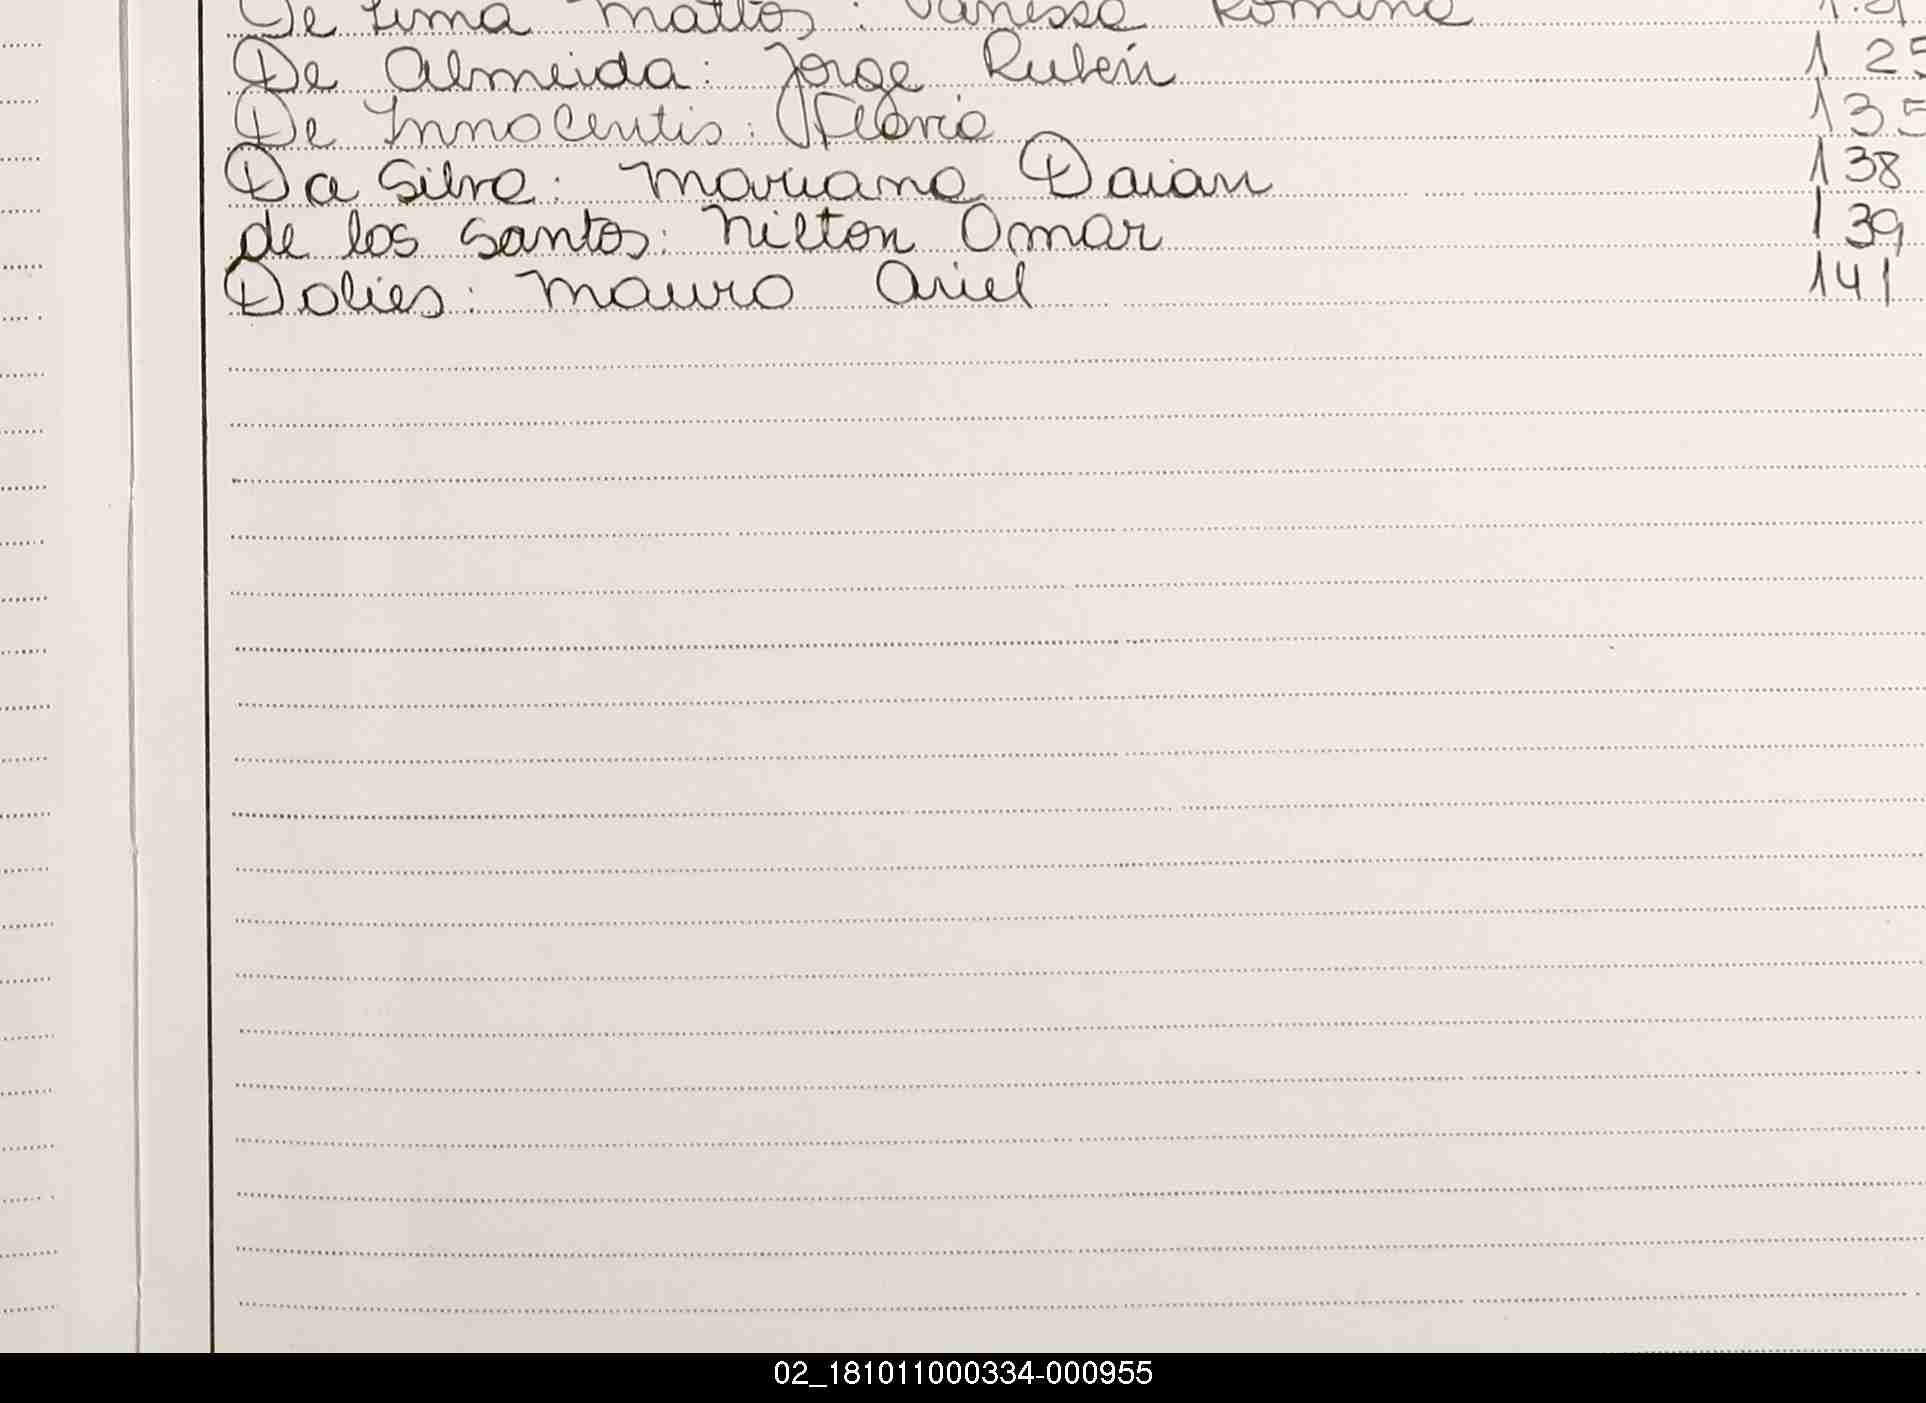 De Lima Mattos: Vanessa Romina
De Almeida: Jorge Rubén 125
De Innocentis: Flavia 135
Da Silva: Mariana Daian 138
de los Santos: Nilton Omar 139
Dolies: Mauro Ariel 141
02_181011000334-000955